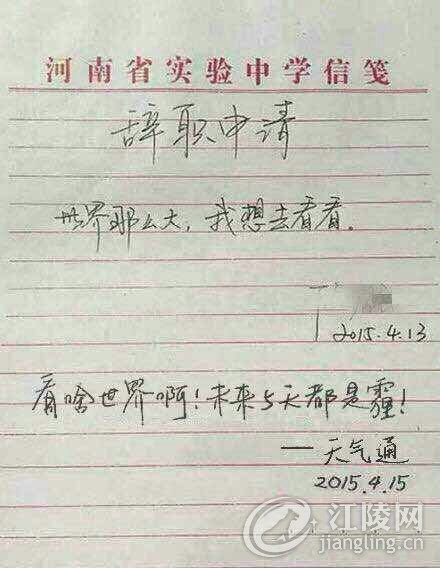 河南省实验中学信笺
辞职申请
世界那么大，我想去看看.
2015.4.13
看啥世界啊！未来5天都是霾！
——天气通
2015.4.15
江陵网
jiangling.cn